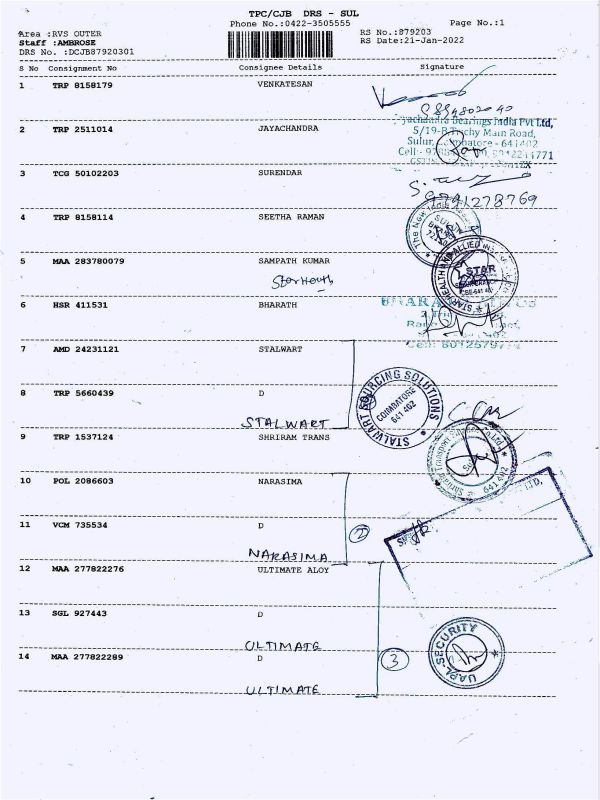 TPC/CJB DRS - SUL
Phone No.:0422-3505555
Page No.:1
Area :RVS OUTER
RS No.:879203
Staff :AMBROSE
RS Date:21-Jan-2022
DRS No. :DCJB87920301
S No Consignment No Consignee Details Signature
1 TRP 8158179 VENKATESAN
2 TRP 2511014 JAYACHANDRA
Bearings India Pvt Ltd,
5/19-B Trichy Main Road,
Sulur, Coimbatore - 641402
3 TCG 50102203 SURENDAR
9791278769
4 TRP 8158114 SEETHA RAMAN
The New India
5 MAA 283780079 SAMPATH KUMAR
Star Health
STAR HEALTH AND ALLIED
STAR
6 HSR 411531 BHARATH
7 AMD 24231121 STALWART
8 TRP 5660439 D
STALWART
STALWART SOURCING SOLUTIONS
COIMBATORE
641 402
9 TRP 1537124 SHRIRAM TRANS
Shriram Transport
641 402
10 POL 2086603 NARASIMA
11 VCM 735534 D
2
NARASIMA
12 MAA 277822276 ULTIMATE ALOY
13 SGL 927443 D
ULTIMATE
UAPL-SECURITY
14 MAA 277822289 D
3
ULTIMATE